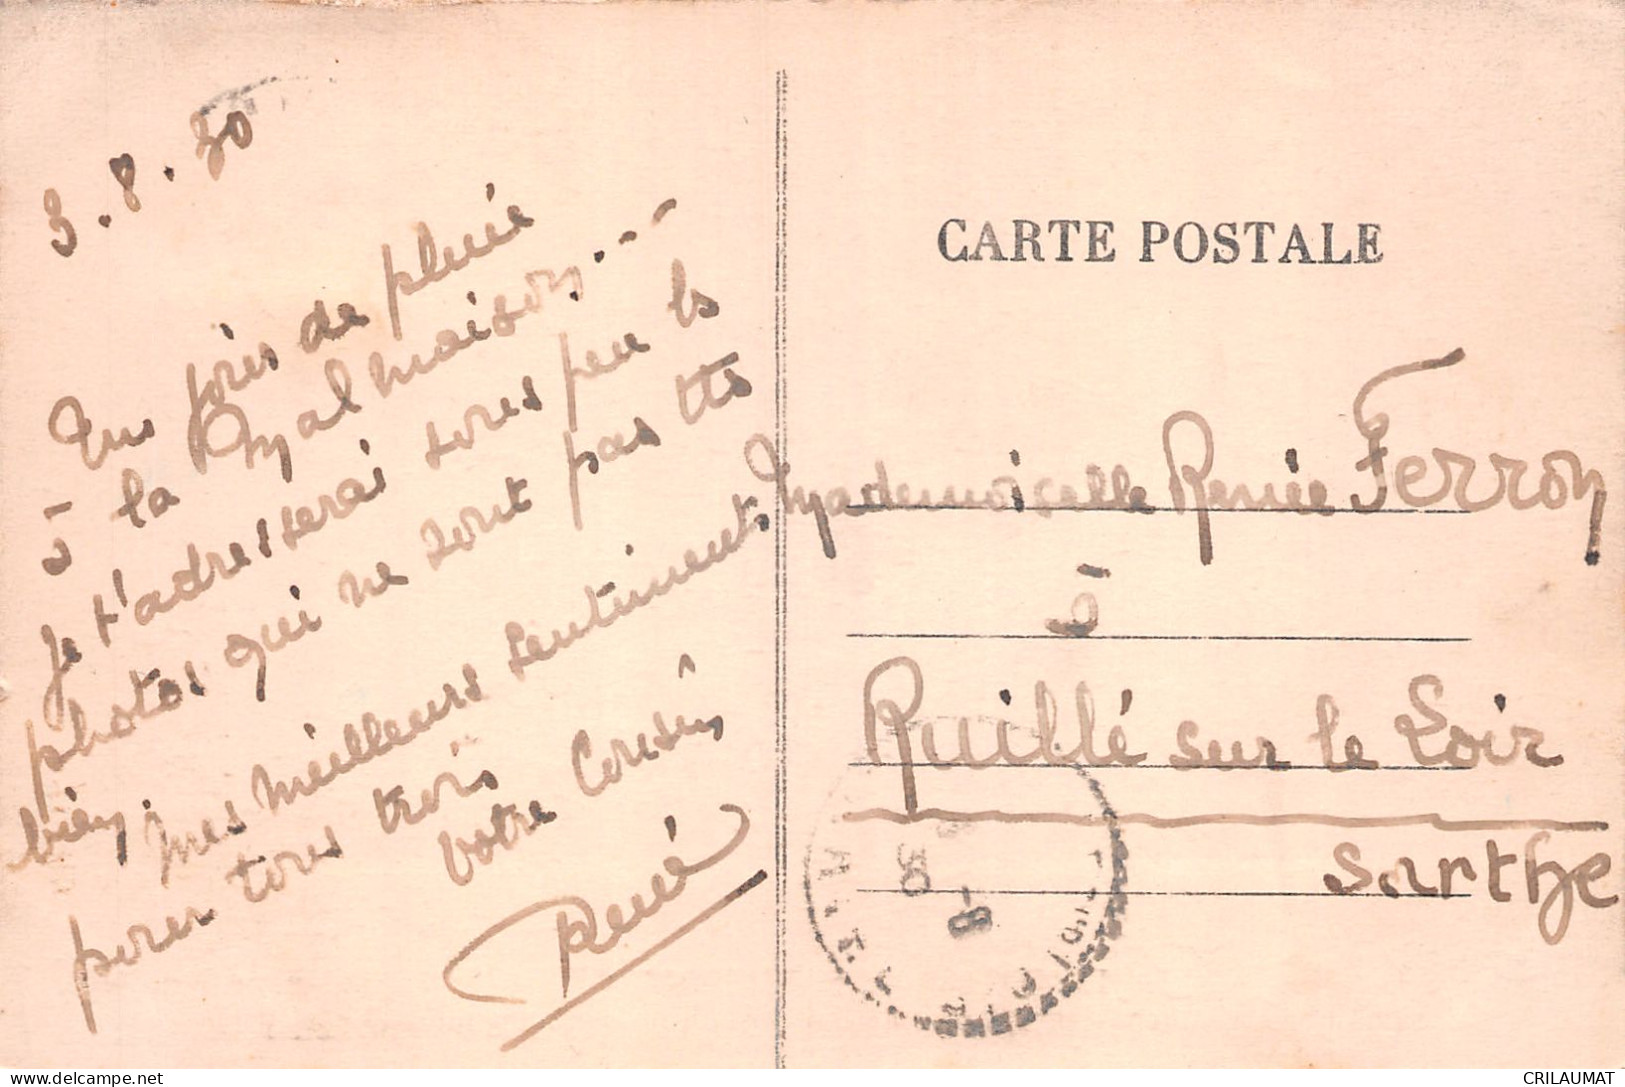 3.8.30
jour de pluie
à la Malmaison...
je t'adresserai sous peu les
photos qui ne sont pas très
bien.
mes meilleurs sentiments
pour tous trois
votre Cousin
René
CARTE POSTALE
Mademoiselle Renée Ferron
à
Ruillé sur le Loir
Sarthe
CRILAUMAT